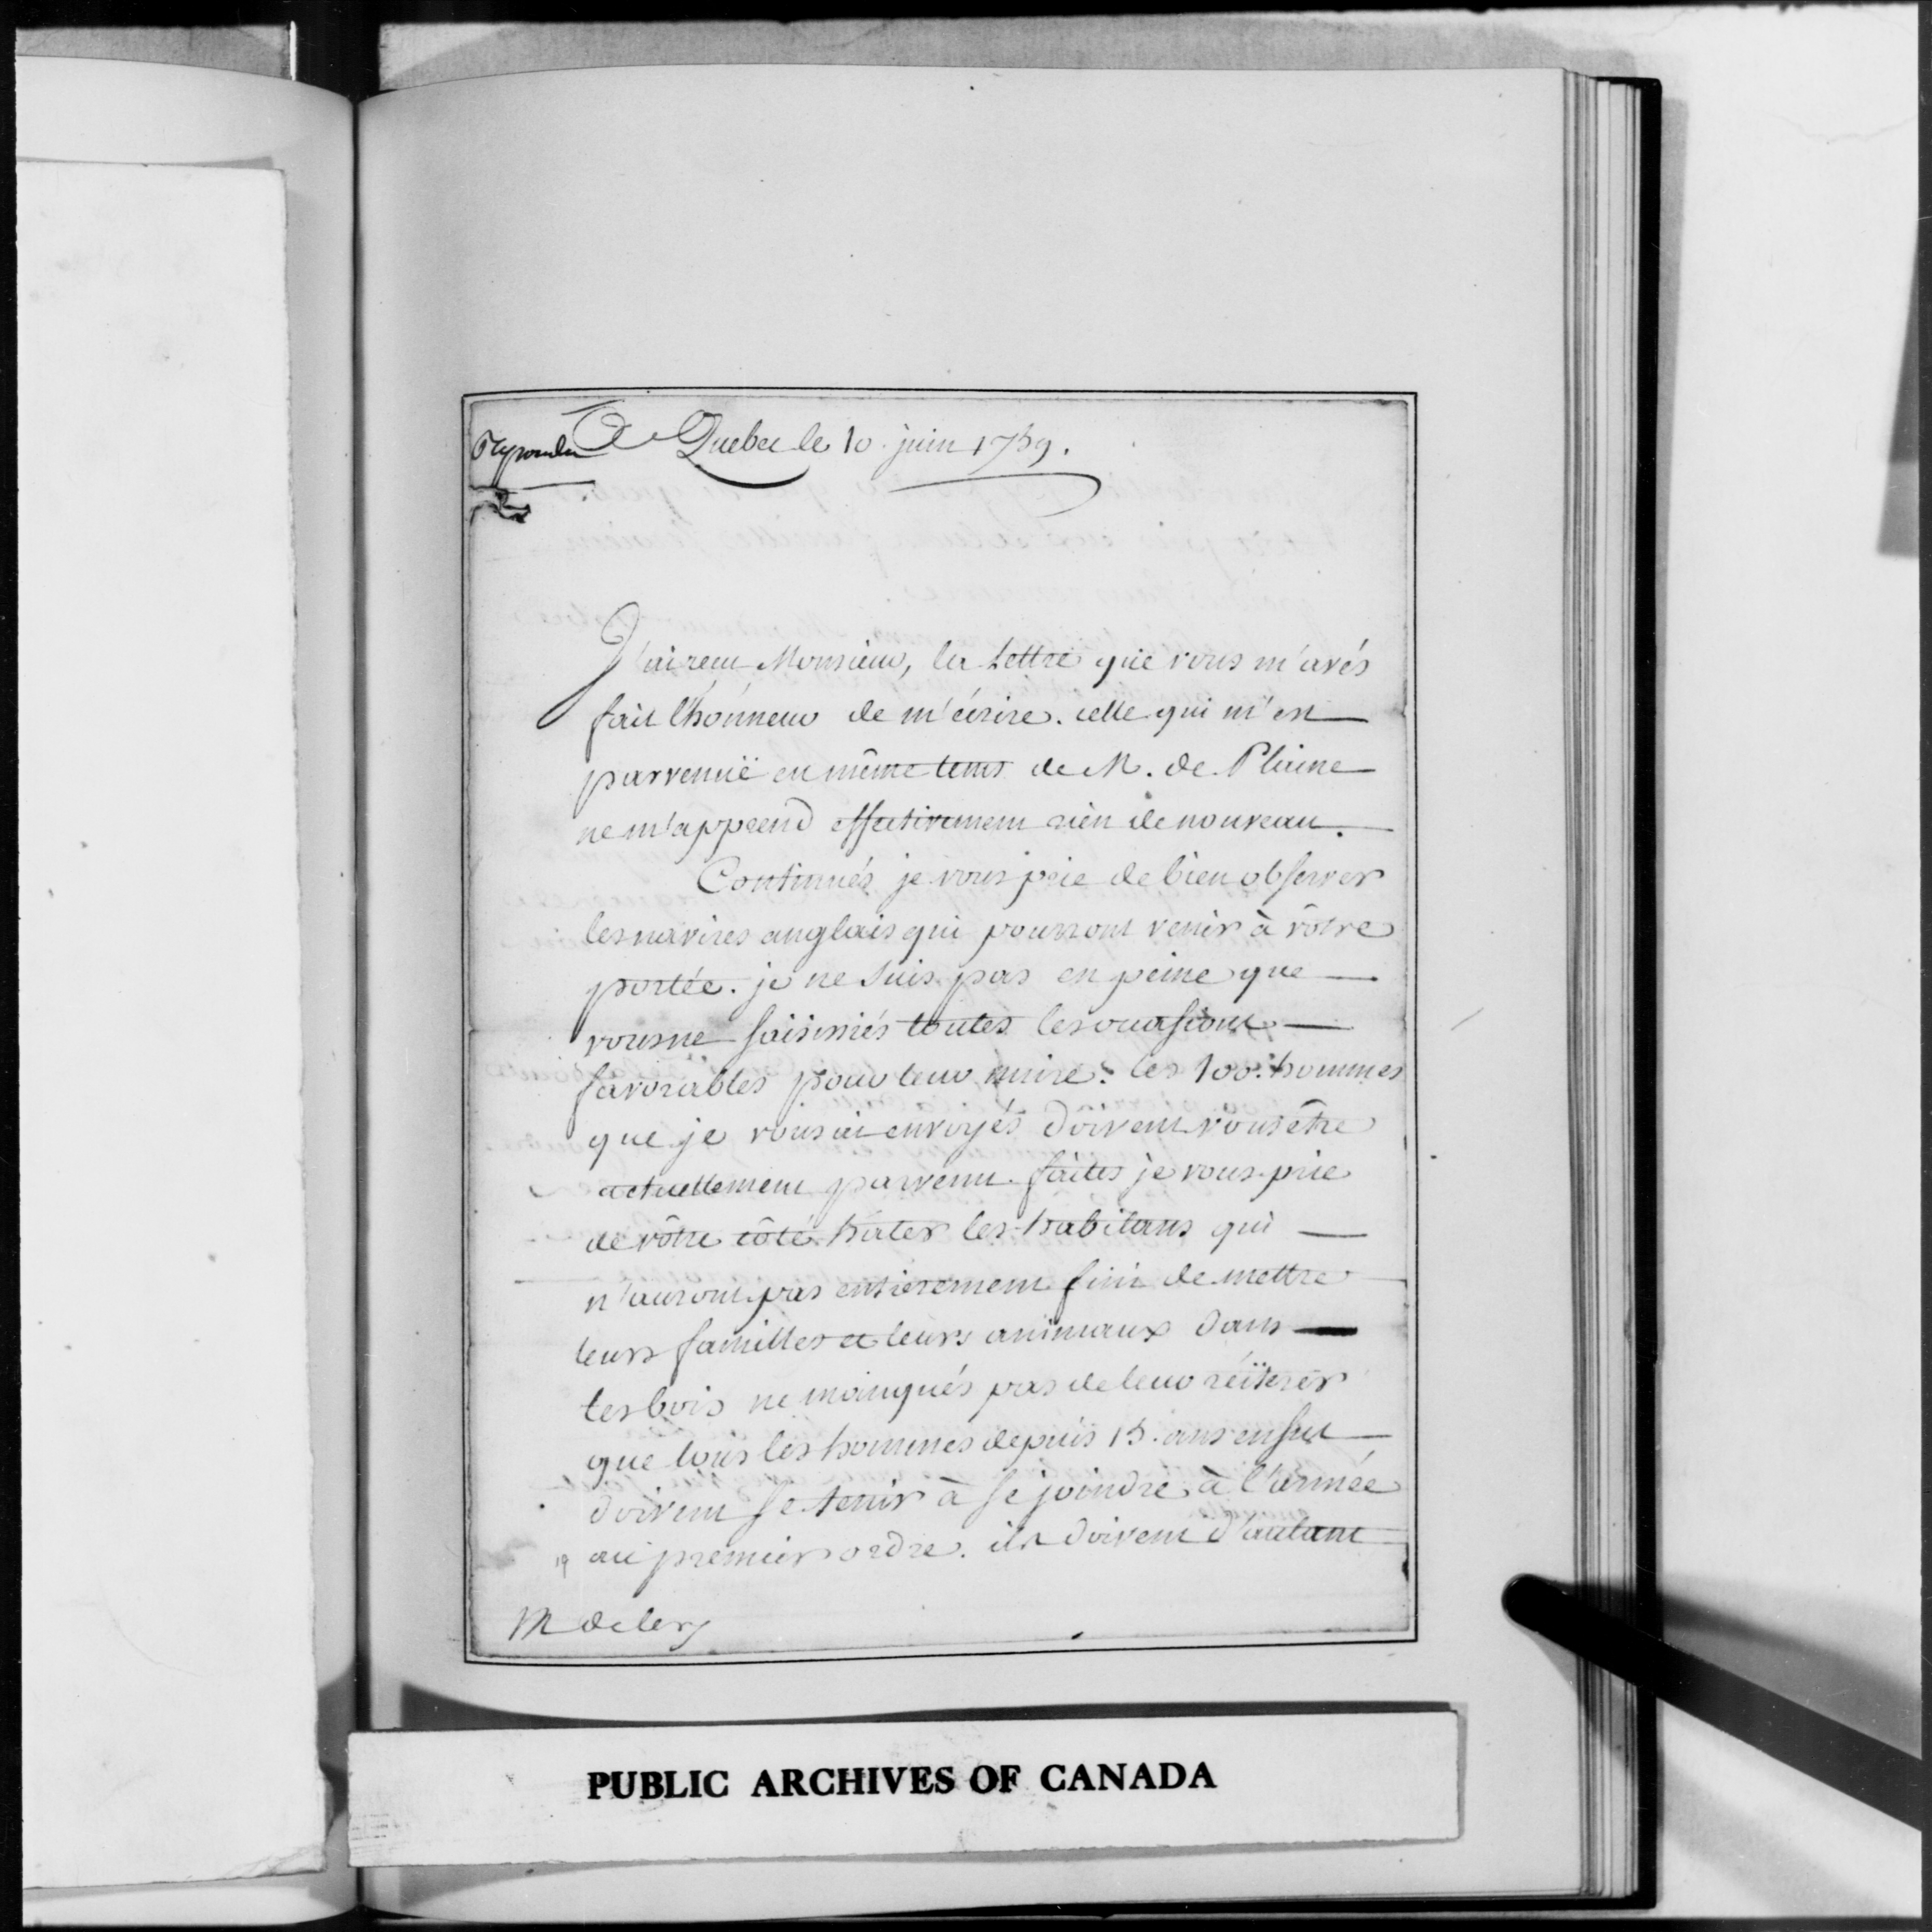 A Quebec le 10. juin 1759.
J'ai reçu Monsieur, la Lettre que vous m'avés
fait l'hónneur de m'écrire. celle qui m'est
parvenuë en même tems de M. de Plaine
ne m'apprend effectivement rien de nouveau.
Continués je vous prie de bien observer
les navires anglais qui pourront venir à vôtre
portée. je ne suis pas en peine que
vous ne saisissiés toutes les occasions
favorables pour leur nuire. les 100. hommes
que je vous ai envoyés doivent vous être
actuellement parvenu. faites je vous prie
de vôtre côté hâter les habitans qui
n'auront pas entierement fini de mettre
leurs familles et leurs animaux dans
les bois ne manqués pas de leur réïterer
que tous les hommes depuis 15. ans en sus
doivent se tenir à se joindre à l'armée
19 au premier ordre. ils doivent d'autant
M de lery
PUBLIC ARCHIVES OF CANADA